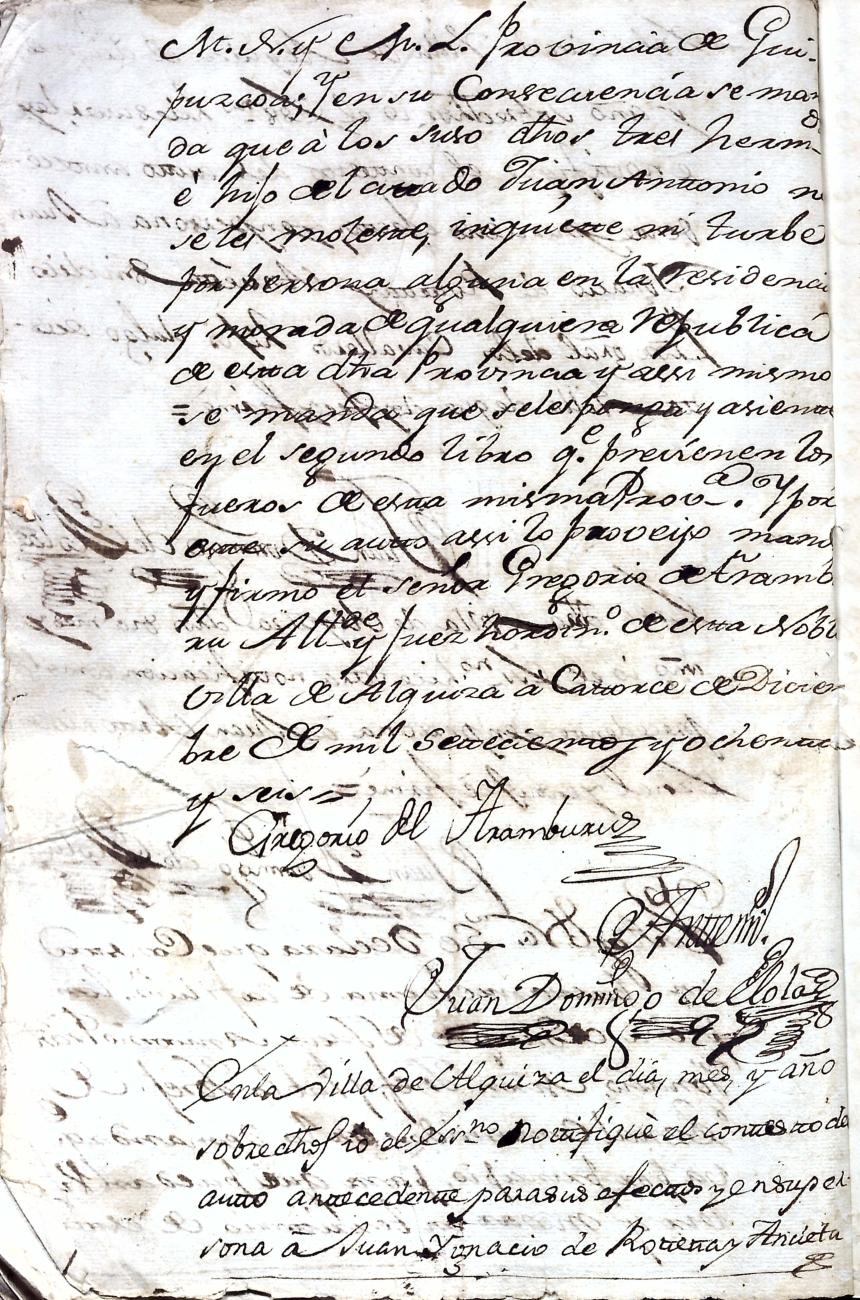 M. N. y M. L. Provincia de Gui-
puzcoa; Y en su Consecuencia se man
da que à los suso dhos tres herm-
é hijo del citado Juan Antonio n
se les moleste, inquiete ni turbe
por persona alguna en la residenci
y morada de qualquiera republica
de esta dha Provincia y assi mismo
=se manda que seles ponga y asiente
en el segundo libro q.e previenen los
fueros de esta misma Prov.a. Y por
este su auto assi lo proveyo mand
y firmo el señor Gregorio de Aramb
ru Allde y Juez hordin.o de esta Nobl
Villa de Alquiza a Catorce de Diciem
bre de mil setecientos y ochenta
y seis=
Gregorio de Aramburu
Antemi.
Juan Domingo de Olola
Enla Villa de Alquiza el dia, mes, y año
sobredhos io el Essno notifiquè el contesto de
auto antecedente parasus efectos y ensuper
sona à Juan Ygnacio de Roteta y Ancieta